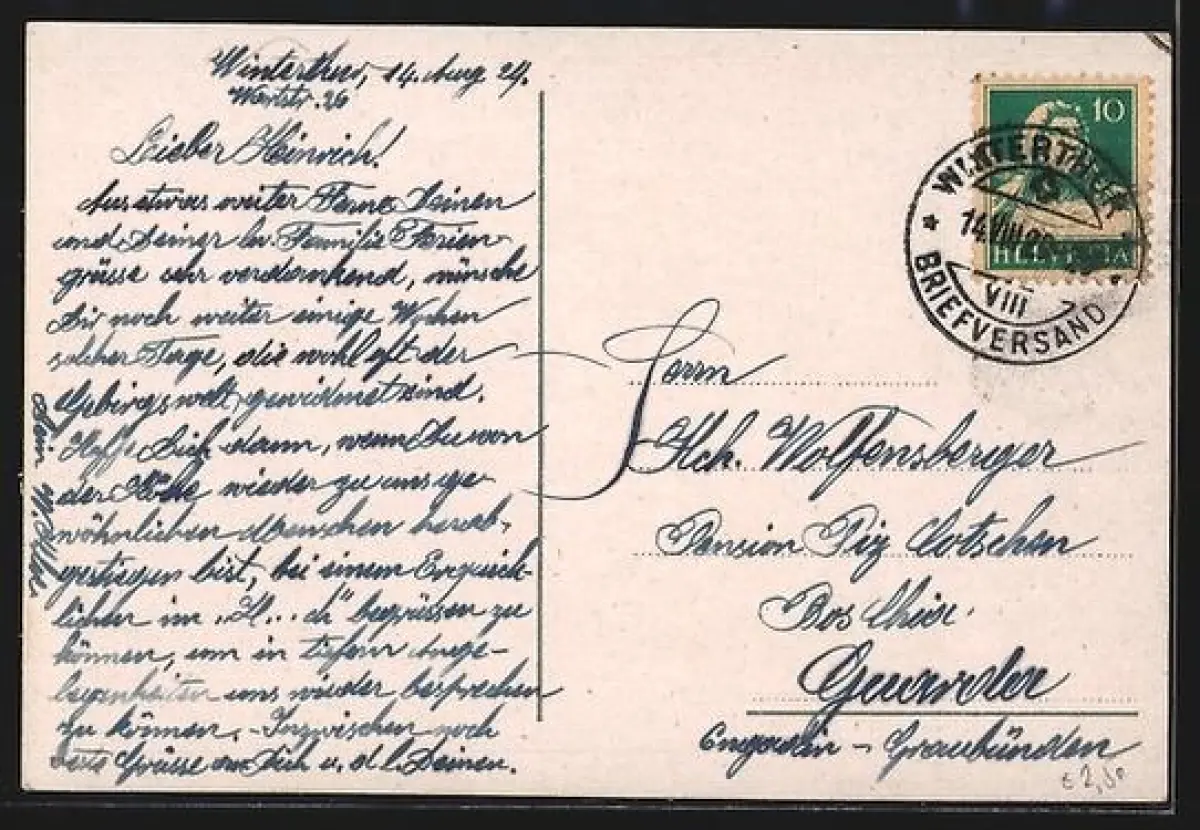 Winterthur, 14. Aug 24.
Wartstr. 26
Lieber Heinrich!
Aus etwas weiter Ferne Deinen
und Deiner lb. Familie Ferien-
grüsse sehr verdankend, wünsche
Dir noch weiter einige Wochen
solcher Tage, die wohl oft der
Gebirgswelt gewidmet sind.
Hoffe Dich dann, wenn Du von
der Höhe wieder zu uns ge-
wöhnlichen Menschen herab-
gestiegen bist, bei einem Erquick-
lichen im "H...ch" begrüssen zu
können, um in tiefern Ange-
legenheiten uns wieder besprechen
zu können. - Inzwischen noch
beste Grüsse an Dich u. d. l. Deinen.
Dein
10
HELVETIA
WINTERTHUR
14.VIII
VIII
BRIEFVERSAND
Herrn
Hch. Wolfensberger
Pension Piz Cotschen
Bos
Guarda
Engadin - Graubünden